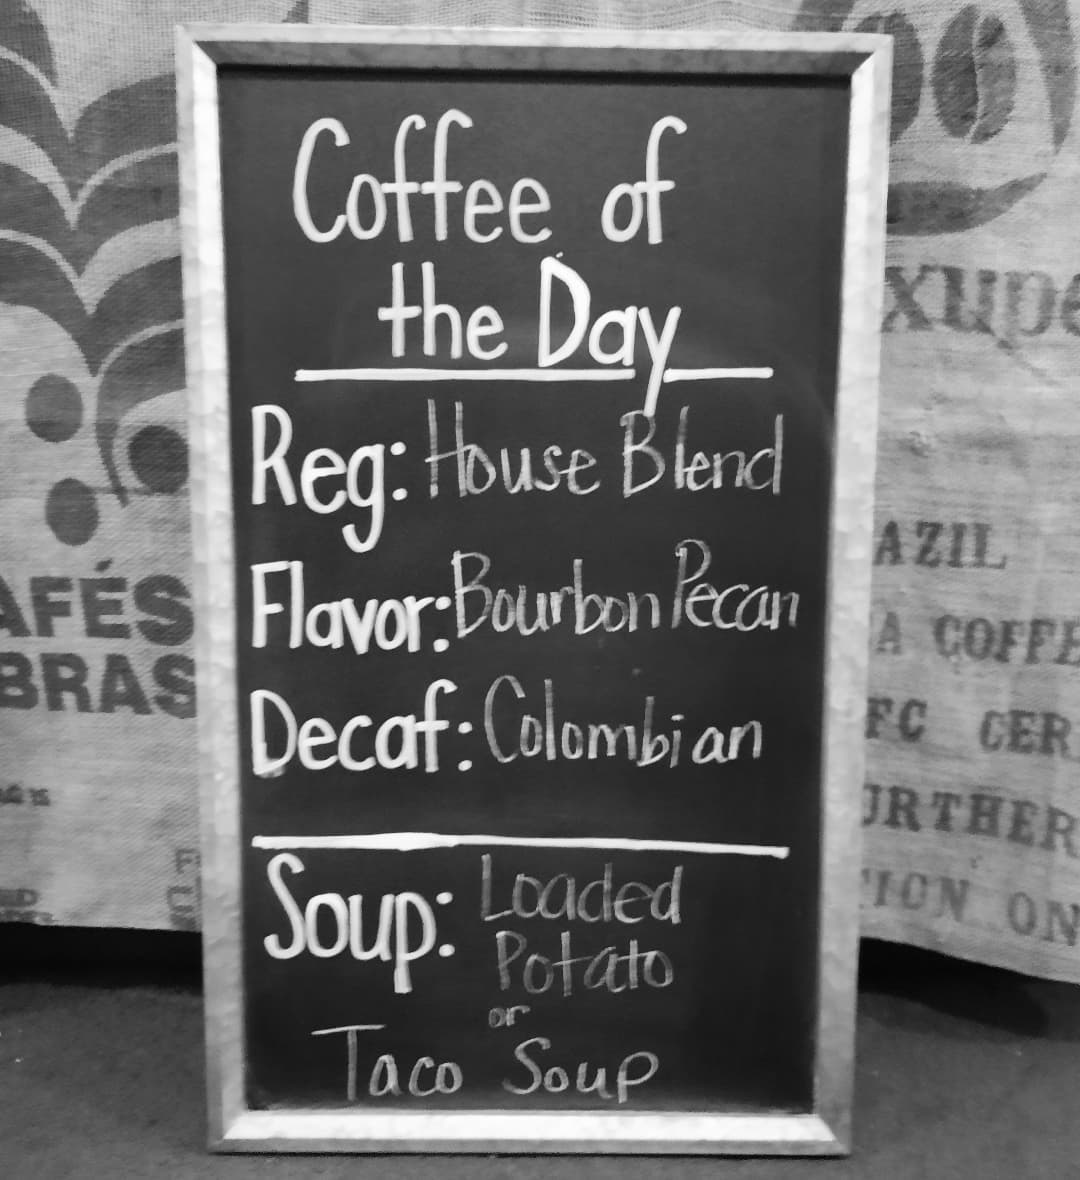 Coffee of
the Day
Reg: House Blend
Flavor: Bourbon Pecan
Decaf: Colombian
Soup: Loaded
Potato
or
Taco Soup
AFÉS
BRAS
xupé
AZIL
A COFFE
FC CER
URTHER
ON